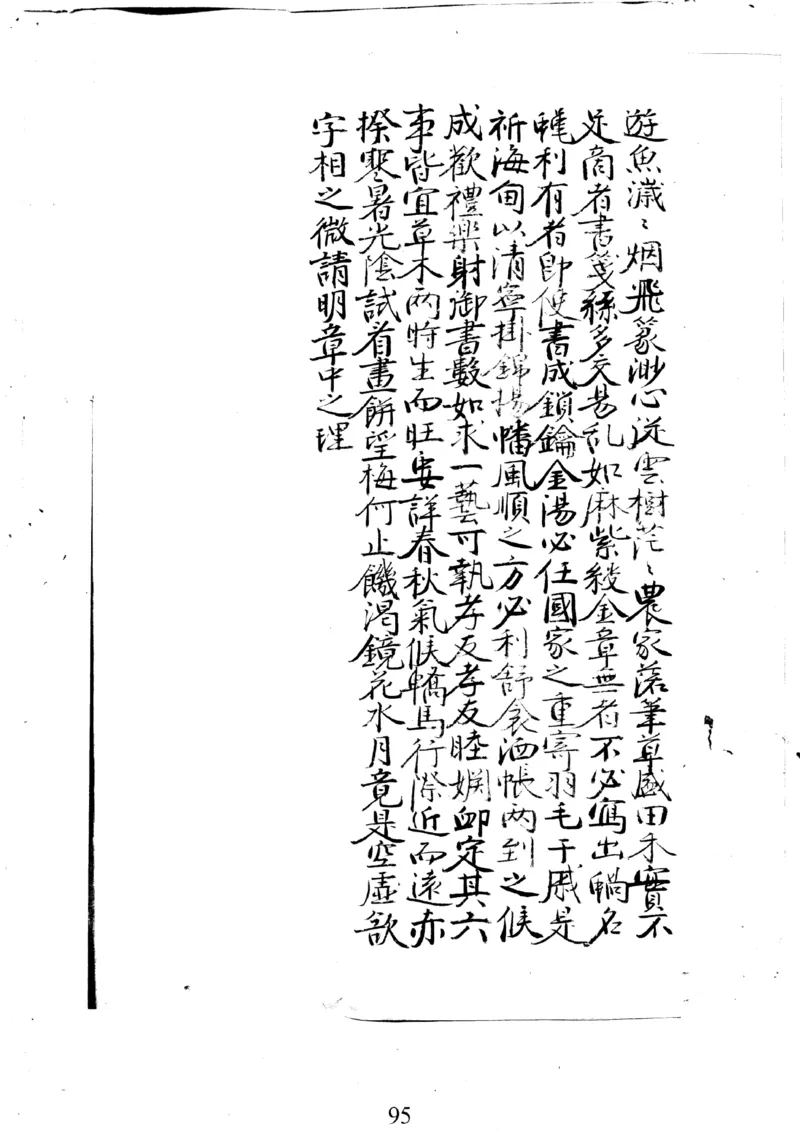 遊魚濊〻烟飛篆渺心從雲樹茫〻農家落筆草盛田禾實不
足商者書箋絲多交易乱如麻紫綬金章無者不必寫出蝸名
利有者即使書成鎖鑰金湯必任國家之重寄羽毛干戚是
祈海甸以清寧掛錦揚幡風順之方必利舒衾洒帳两到之候
成歡禮樂射御書數如求一藝可執孝友孝友睦婣卹定其六
事皆宜草木两時生而旺安詳春秋氣候轎馬行際近而遠亦
揆寒暑光陰試看畫餅望梅何止饑渴鏡花水月竟是空虛欲
字相之微請明章中之理
95